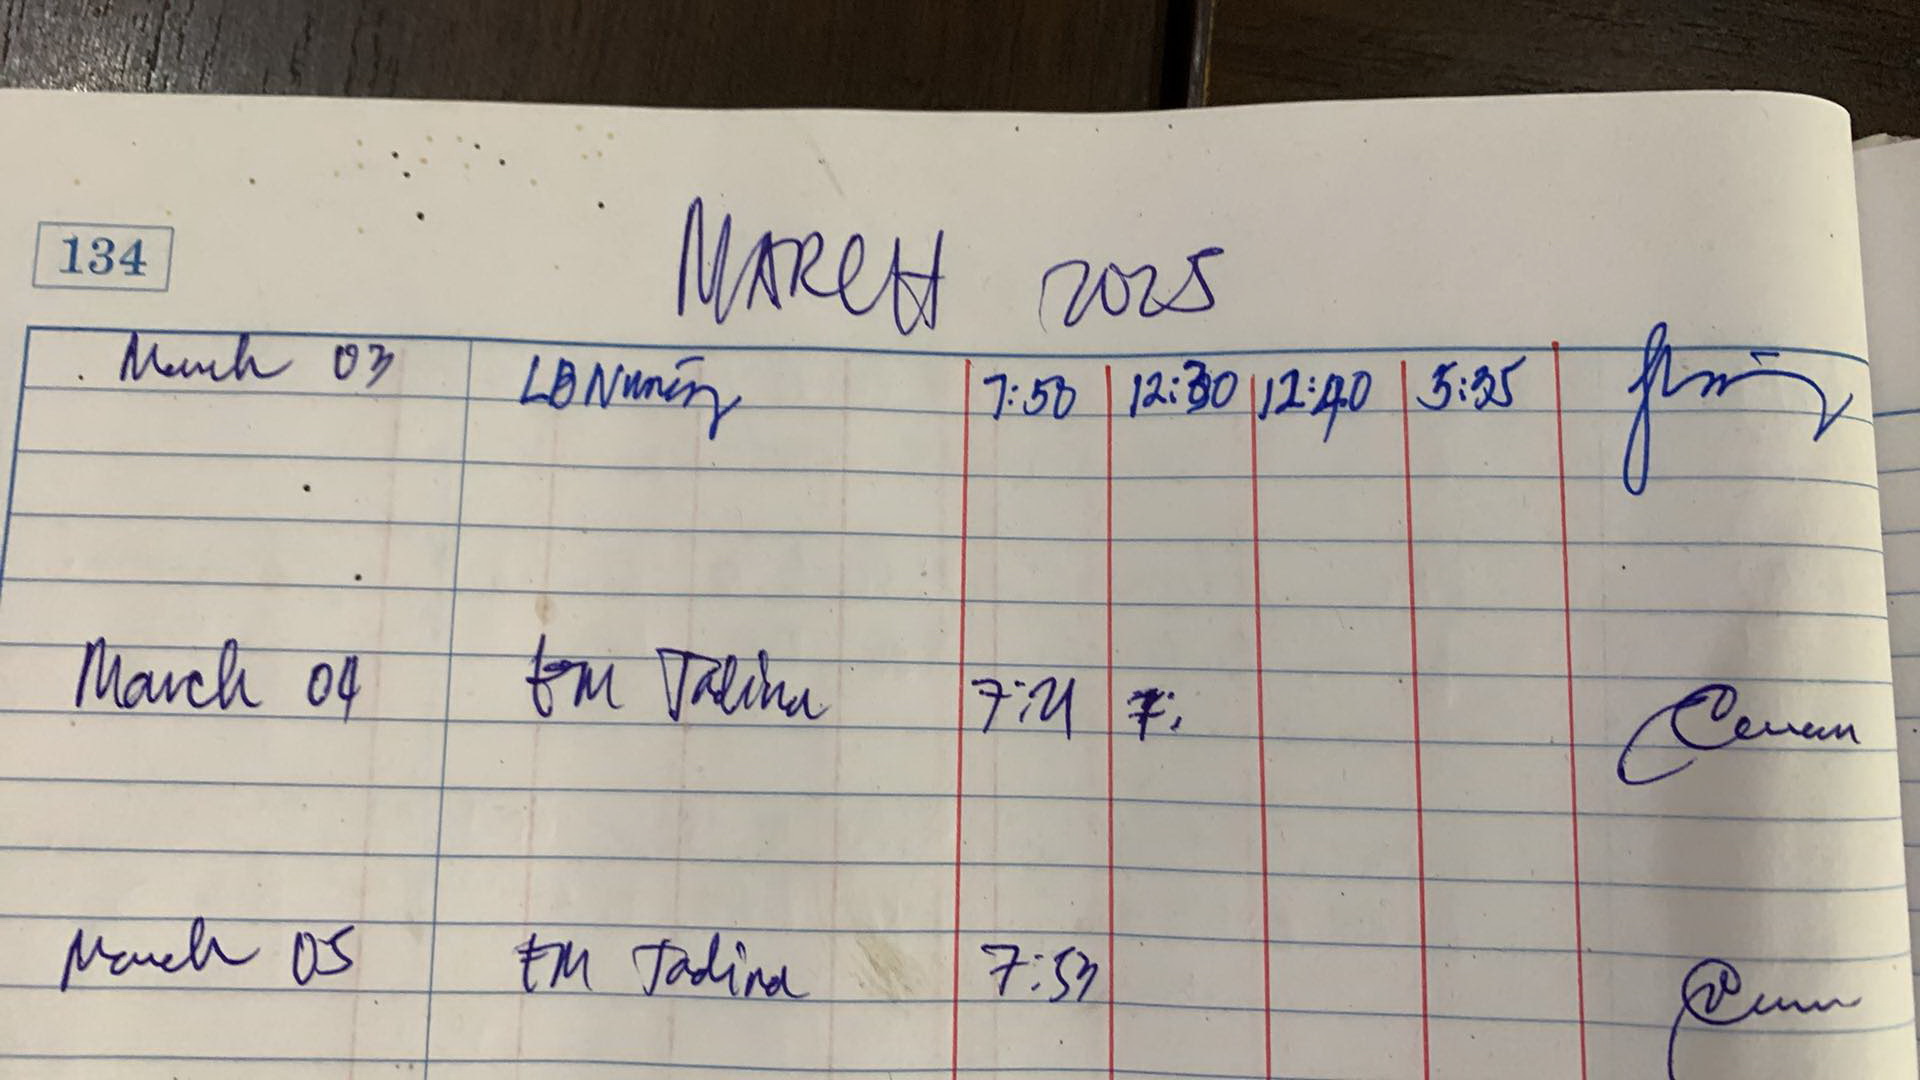 134
MARCH 2025
March 03 LBNunez 7:50 12:30 12:40 5:35
March 04 EM Tadina 7:21 7:
March 05 EM Tadina 7:53